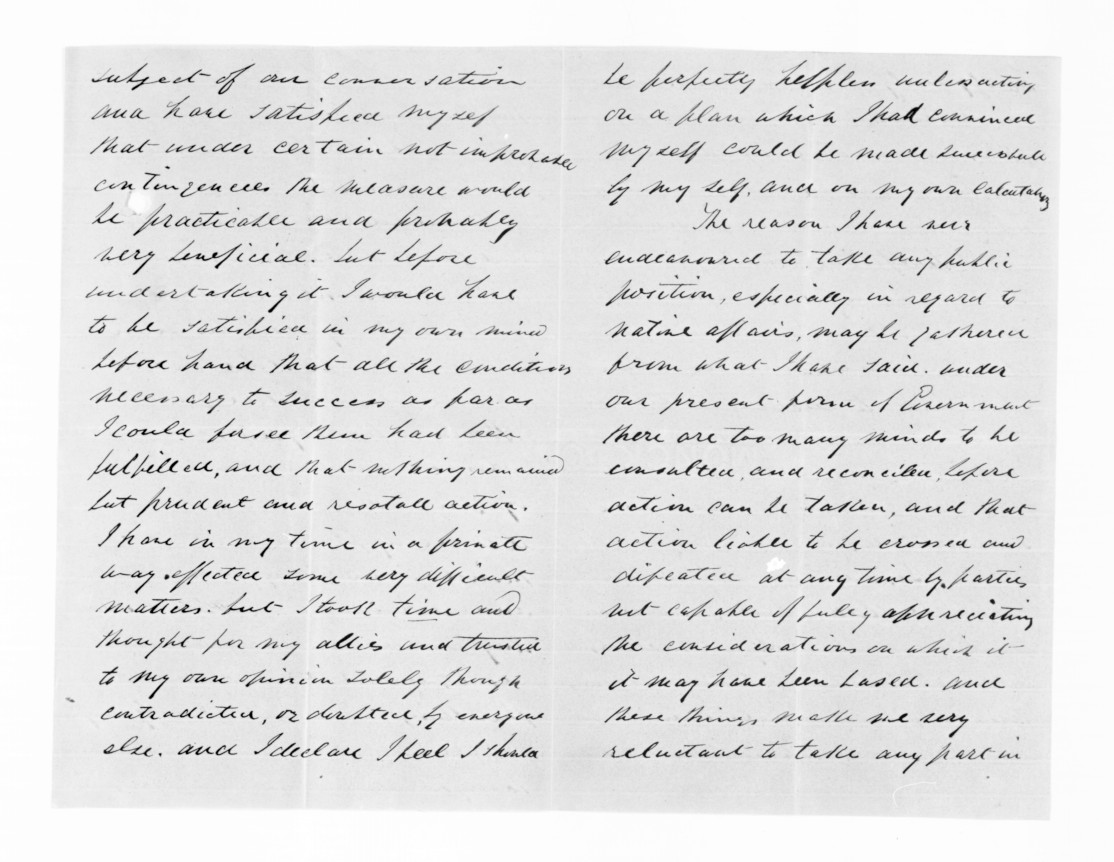 subject of our conversation
and have satisfied myself
that under certain not improbable
contingencees the measure would
be practicable and probably
very beneficial. but before
undertaking it I would have
to be satisfied in my own mind
before hand that all the conditions
necessary to success as far as
I could forsee them had been
fulfilled, and that nothing remained
but prudent and resolute action.
I have in my time in a private
way effected some very difficult
matters. but I took time and
thought for my allies and trusted
to my own opinion solely though
contradicted, or doubted, by everyone
else. and I declare I feel I should
be perfectly helpless unless acting
on a plan which I had convinced
myself could be made successful
by my self, and on my own calculations
The reason I have never
endeavoured to take any public
position, especially in regard to
native affairs, may be gathered
from what I have said. under
our present form of Government
there are too many minds to be
consulted, and reconciled, before
action can be taken, and that
action liable to be crossed and
defeated at any time by parties
not capable of fully appreciating
the considerations on which it
it may have been based. and
these things make me very
reluctant to take any part in